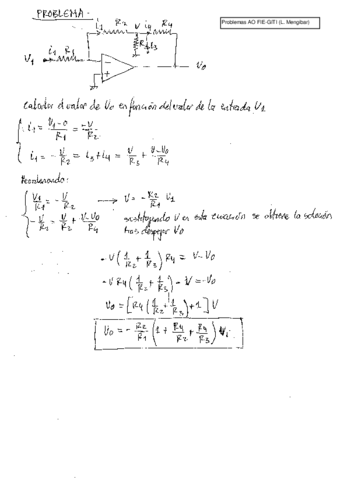 PROBLEMA.-
Problemas AO FIE-GITI (L. Mengibar)
i1 R2 V i4 R4
R3 i3
V1 i1 R1
-
+
V0
Calcular el valor de V0 en función del valor de la entrada V1
i1 = (V1-0)/R1 = -V/R2
i1 = -V/R2 = i3+i4 = V/R3 + (V-V0)/R4
Reordenando:
V1/R1 = -V/R2 → V = -R2/R1 V1
-V/R2 = V/R3 + (V-V0)/R4 sustituyendo V en esta ecuación se obtiene la solución
tras despejar V0
-V(1/R2 + 1/R3) R4 = V-V0
-V R4 (1/R2 + 1/R3) - V = -V0
V0 = [R4 (1/R2 + 1/R3) + 1] V
V0 = -R2/R1 (1 + R4/R2 + R4/R3) Vi